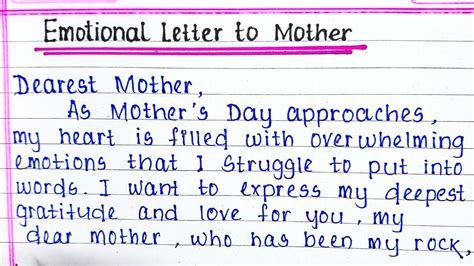 Emotional Letter to Mother
Dearest Mother,
As Mother's Day approaches,
my heart is filled with overwhelming
emotions that I struggle to put into
words. I want to express my deepest
gratitude and love for you, my
dear mother, who has been my rock,